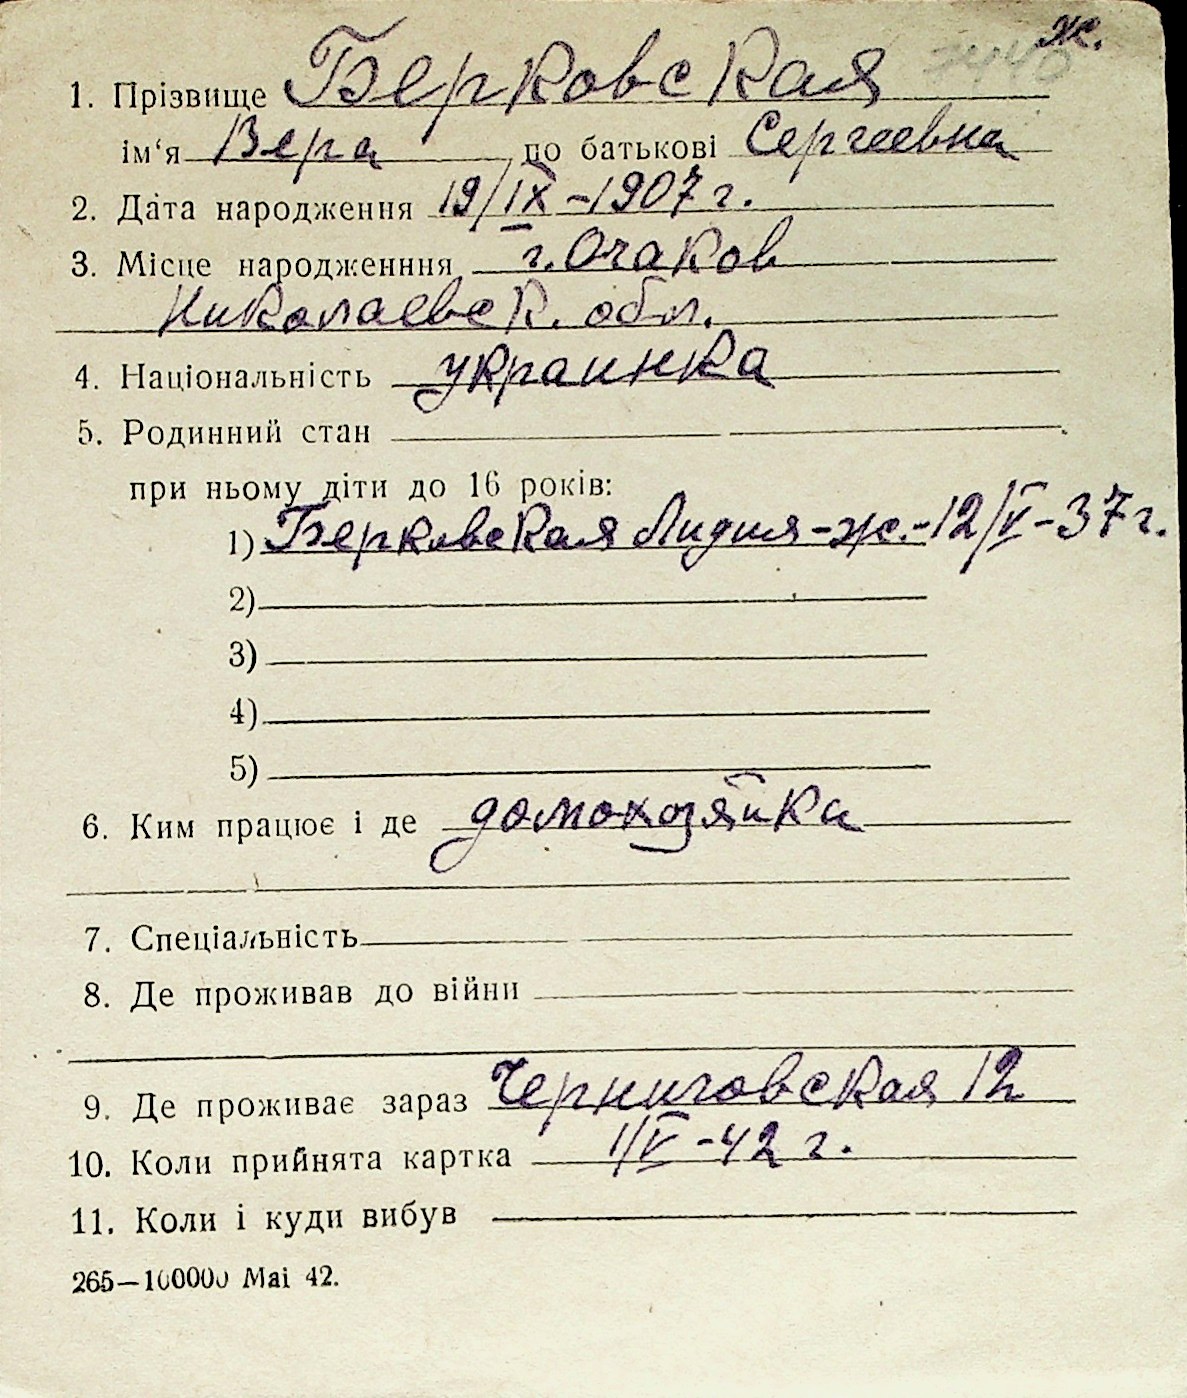 ж.
1. Прізвище Берковская
ім‘я Вера, по батькові Сергеевна
2. Дата народження 19/IX-1907 г.
3. Місце народженння г. Очаков
Николаевск. обл.
4. Національність украинка
5. Родинний стан
при ньому діти до 16 років:
1) Берковская Лидия-ж.-12/V-37 г.
2)
3)
4)
5)
6. Ким працює і де домохозяйка
7. Спеціальність
8. Де проживав до війни
9. Де проживає зараз Черниговская 12
10. Коли прийнята картка 1/V-42 г.
11. Коли і куди вибув
265—100000 Mai 42.